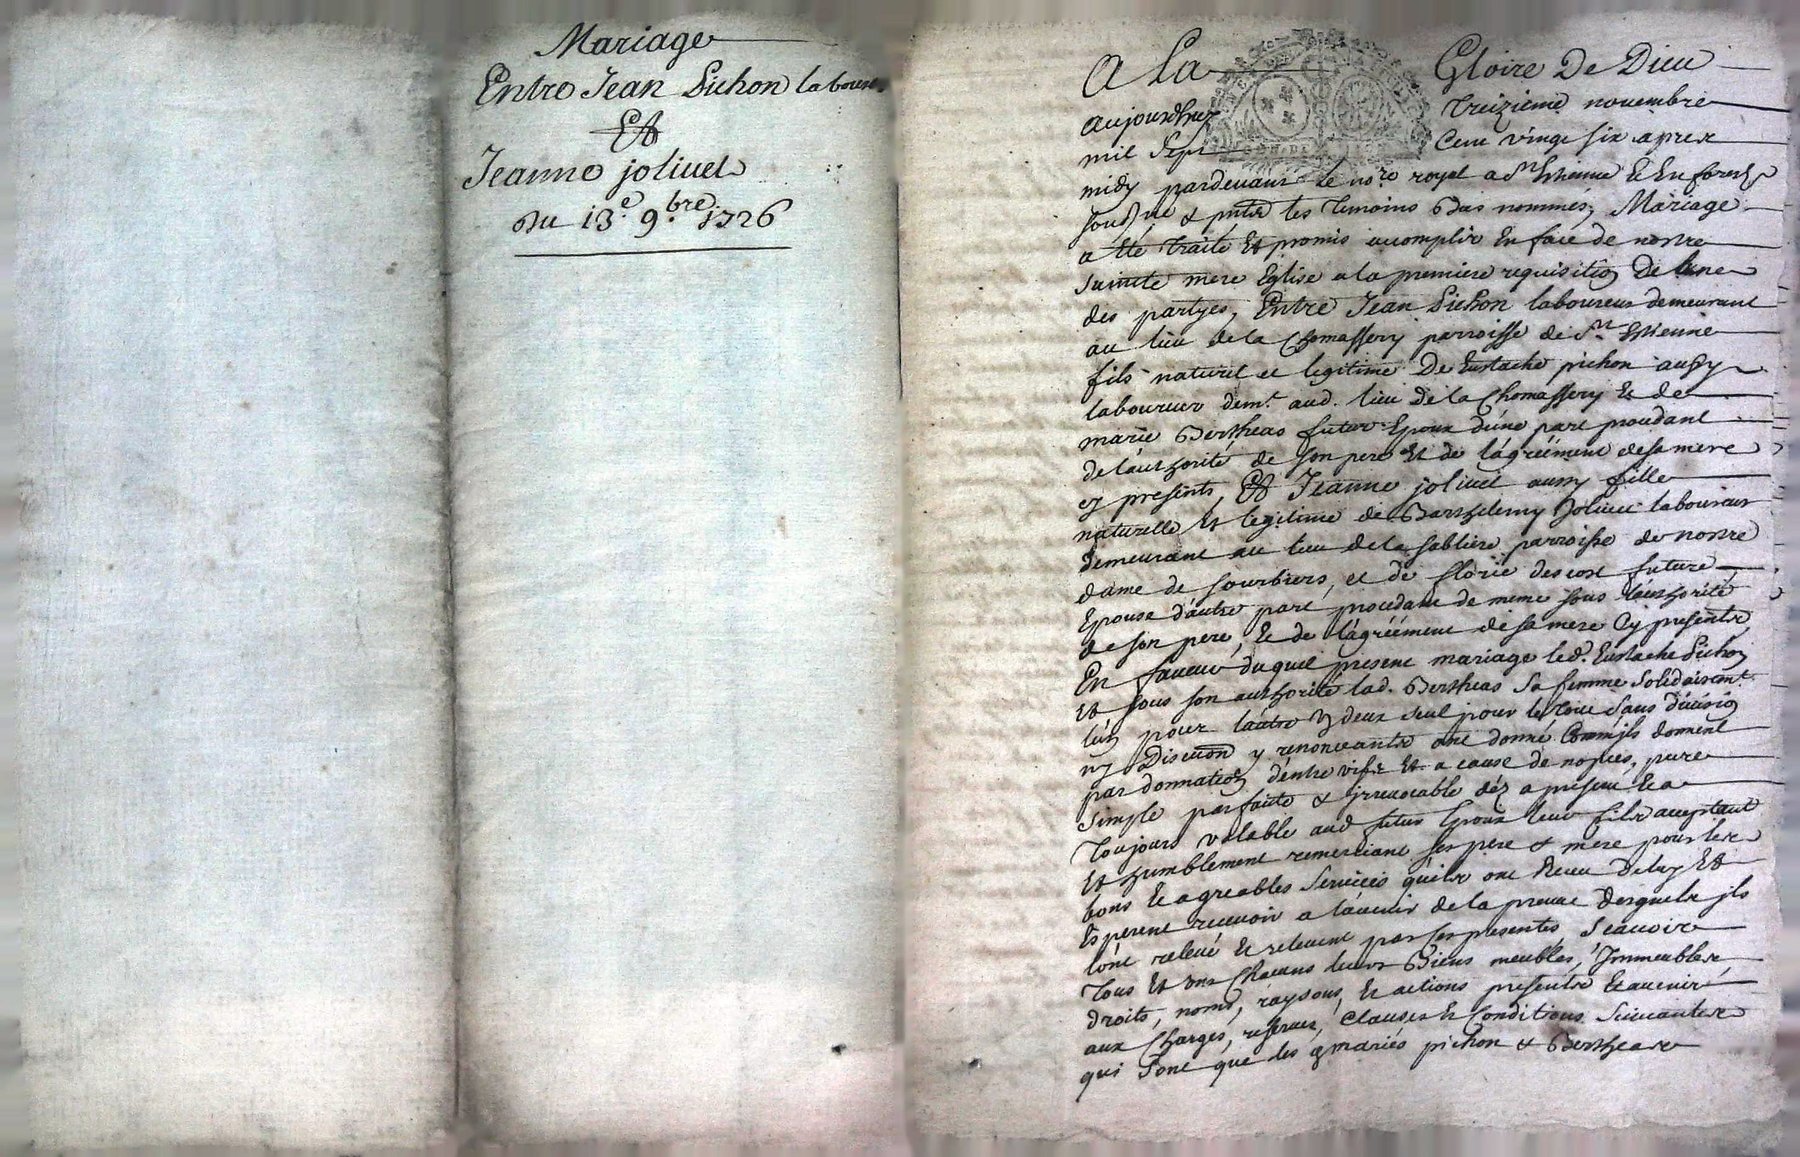 Mariage
Entre Jean Pichon laboureur
Et
Jeanne jolivet
Du 13e. 9bre. 1726
A La Gloire De Dieu
aujourdhuy Treizieme novembre
mil Sept Cent vingt six apres
midy pardevant le nore. royal a St. Etienne Et En forest
sousne & pnts les temoins Bas nommés, Mariage
a Eté traité Et promis accomplir En face de nostre
sainte mere Eglise a la premiere requisition De lune
des partyes, Entre Jean Pichon laboureur demeurant
au lieu de la Chomassery parroisse de St. Etienne
fils naturel et legitime De Eustache pichon aussy
laboureur demt. aud. lieu De la Chomassery Et de
marie Bertheas futur Epoux d'une part procedant
de l'authorité de son pere Et de l'agréement de sa mere
cy presents, Et Jeanne jolivet aussy fille
naturelle Et legitime de Barthelemy Jolivet laboureur
demeurant au lieu de la sabliere parroisse de nostre
dame de sourbiers, et de florie descos future
Epouse d'autre part procedant de meme sous l'authorité
de son pere, Et de l'agréement de sa mere Cy presents,
En faveur duquel present mariage led. Eustache Pichon
Et sous son authorité lad. Bertheas sa femme solidairemt.
lun pour lautre & deux seul pour le tout sans division
ny Discution y renonceants ont donné Comm'jls donnent
par donnation d'entre vifs Et a cause de nopces, pure
simple parfaite & jrrevocable déz a present Et a
Toujours valable aud futur Epoux leur fils acceptant
Et humblement remerciant ses pere & mere pour les
bons Et agreables services qu'ils ont Receu De luy Et
Esperent recevoir a l'avenir de la preuve desquels jls
l'ont relevé Et relevent par ces presentes, Scavoir
Tous Et uns Chacuns leurs Biens meubles, Jmmeubles
droits, noms, raysons, Et actions presents Et avenir
aux Charges, reserves, Clauses & Conditions Suivantes
qui sont que les d. mariés pichon & Bertheas